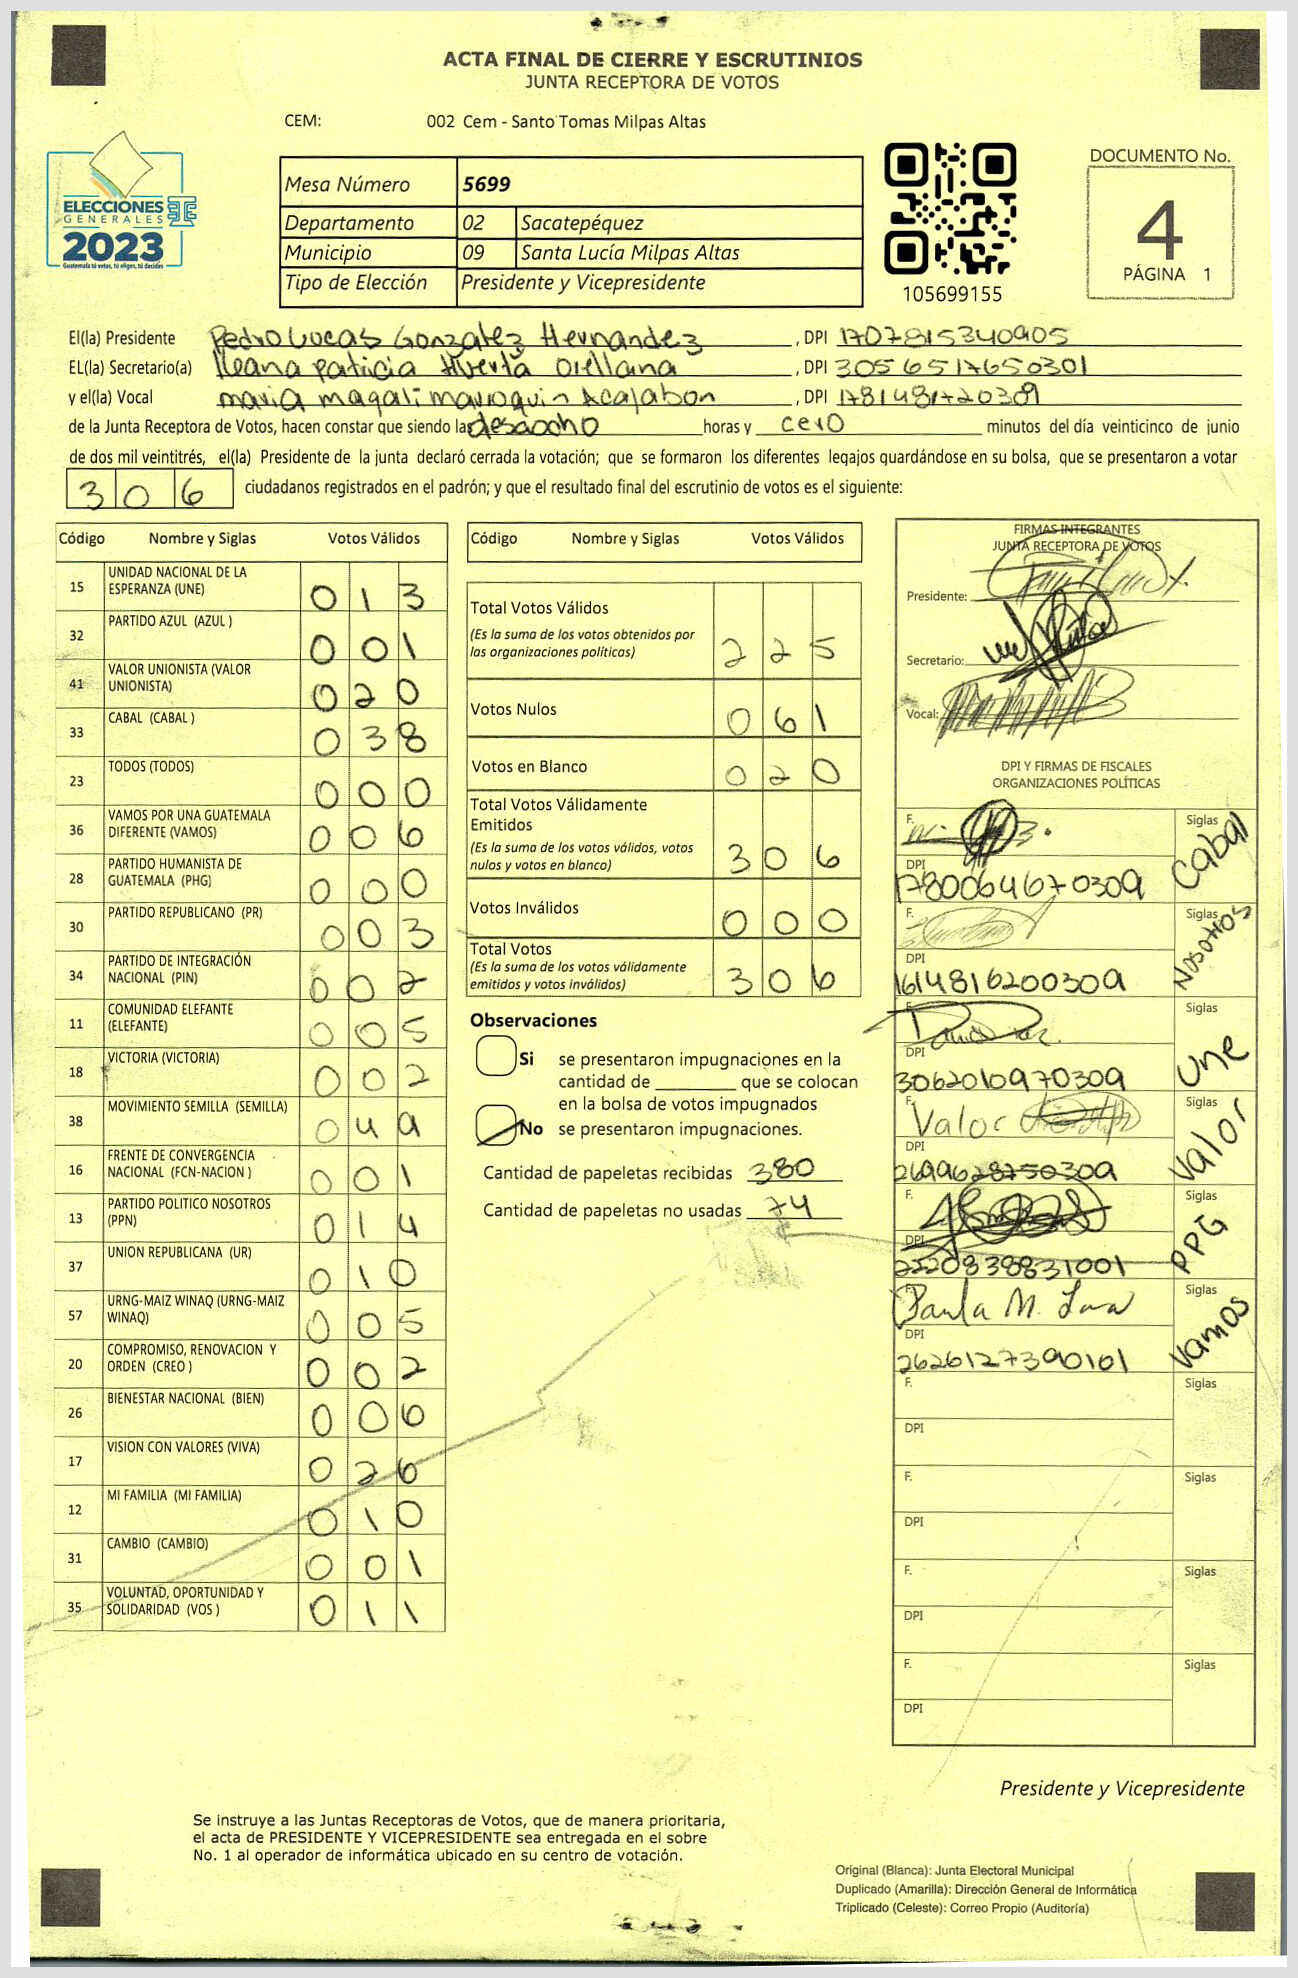 ACTA FINAL DE CIERRE Y ESCRUTINIOS
JUNTA RECEPTORA DE VOTOS
CEM: 002 Cem - Santo Tomas Milpas Altas
ELECCIONES
GENERALES
2023
Guatemala tú votas, tú eliges, tú decides
Mesa Número 5699
Departamento 02 Sacatepéquez
Municipio 09 Santa Lucía Milpas Altas
Tipo de Elección Presidente y Vicepresidente
105699155
DOCUMENTO No.
4
PÁGINA 1
El(la) Presidente Pedro Lucas Gonzalez Hernandez, DPI 1707815340905
EL(la) Secretario(a) Ileana patricia Huerta Orellana, DPI 3056517650301
y el(la) Vocal maria magali marroquin Acajabon, DPI 1781481720309
de la Junta Receptora de Votos, hacen constar que siendo las desaocho horas y cero minutos del día veinticinco de junio
de dos mil veintitrés, el(la) Presidente de la junta declaró cerrada la votación; que se formaron los diferentes legajos guardándose en su bolsa, que se presentaron a votar
306 ciudadanos registrados en el padrón; y que el resultado final del escrutinio de votos es el siguiente:
Código Nombre y Siglas Votos Válidos
15 UNIDAD NACIONAL DE LA ESPERANZA (UNE) 013
32 PARTIDO AZUL (AZUL ) 001
41 VALOR UNIONISTA (VALOR UNIONISTA) 020
33 CABAL (CABAL ) 038
23 TODOS (TODOS) 000
36 VAMOS POR UNA GUATEMALA DIFERENTE (VAMOS) 006
28 PARTIDO HUMANISTA DE GUATEMALA (PHG) 000
30 PARTIDO REPUBLICANO (PR) 003
34 PARTIDO DE INTEGRACIÓN NACIONAL (PIN) 002
11 COMUNIDAD ELEFANTE (ELEFANTE) 005
18 VICTORIA (VICTORIA) 002
38 MOVIMIENTO SEMILLA (SEMILLA) 049
16 FRENTE DE CONVERGENCIA NACIONAL (FCN-NACION ) 001
13 PARTIDO POLITICO NOSOTROS (PPN) 014
37 UNION REPUBLICANA (UR) 010
57 URNG-MAIZ WINAQ (URNG-MAIZ WINAQ) 005
20 COMPROMISO, RENOVACION Y ORDEN (CREO ) 002
26 BIENESTAR NACIONAL (BIEN) 006
17 VISION CON VALORES (VIVA) 026
12 MI FAMILIA (MI FAMILIA) 010
31 CAMBIO (CAMBIO) 001
35 VOLUNTAD, OPORTUNIDAD Y SOLIDARIDAD (VOS ) 011
Código Nombre y Siglas Votos Válidos
Total Votos Válidos 225
(Es la suma de los votos obtenidos por
las organizaciones políticas)
Votos Nulos 061
Votos en Blanco 020
Total Votos Válidamente
Emitidos 306
(Es la suma de los votos válidos, votos
nulos y votos en blanco)
Votos Inválidos 000
Total Votos 306
(Es la suma de los votos válidamente
emitidos y votos inválidos)
Observaciones
Si se presentaron impugnaciones en la
cantidad de ________ que se colocan
en la bolsa de votos impugnados
No se presentaron impugnaciones.
Cantidad de papeletas recibidas 380
Cantidad de papeletas no usadas 74
FIRMAS INTEGRANTES
JUNTA RECEPTORA DE VOTOS
Presidente:
Secretario:
Vocal:
DPI Y FIRMAS DE FISCALES
ORGANIZACIONES POLÍTICAS
F. Siglas Cabal
DPI 1780064670309
F. Siglas Nosotros
DPI 1614816200309
F. Siglas Une
DPI 3062010970309
F. Valor Siglas Valor
DPI 2699628750309
F. Siglas PPG
DPI 2220838831001
F. Paula M. Siglas Vamos
DPI 2626127390101
F. Siglas
DPI
F. Siglas
DPI
F. Siglas
DPI
F. Siglas
DPI
Presidente y Vicepresidente
Se instruye a las Juntas Receptoras de Votos, que de manera prioritaria,
el acta de PRESIDENTE Y VICEPRESIDENTE sea entregada en el sobre
No. 1 al operador de informática ubicado en su centro de votación.
Original (Blanca): Junta Electoral Municipal
Duplicado (Amarilla): Dirección General de Informática
Triplicado (Celeste): Correo Propio (Auditoría)